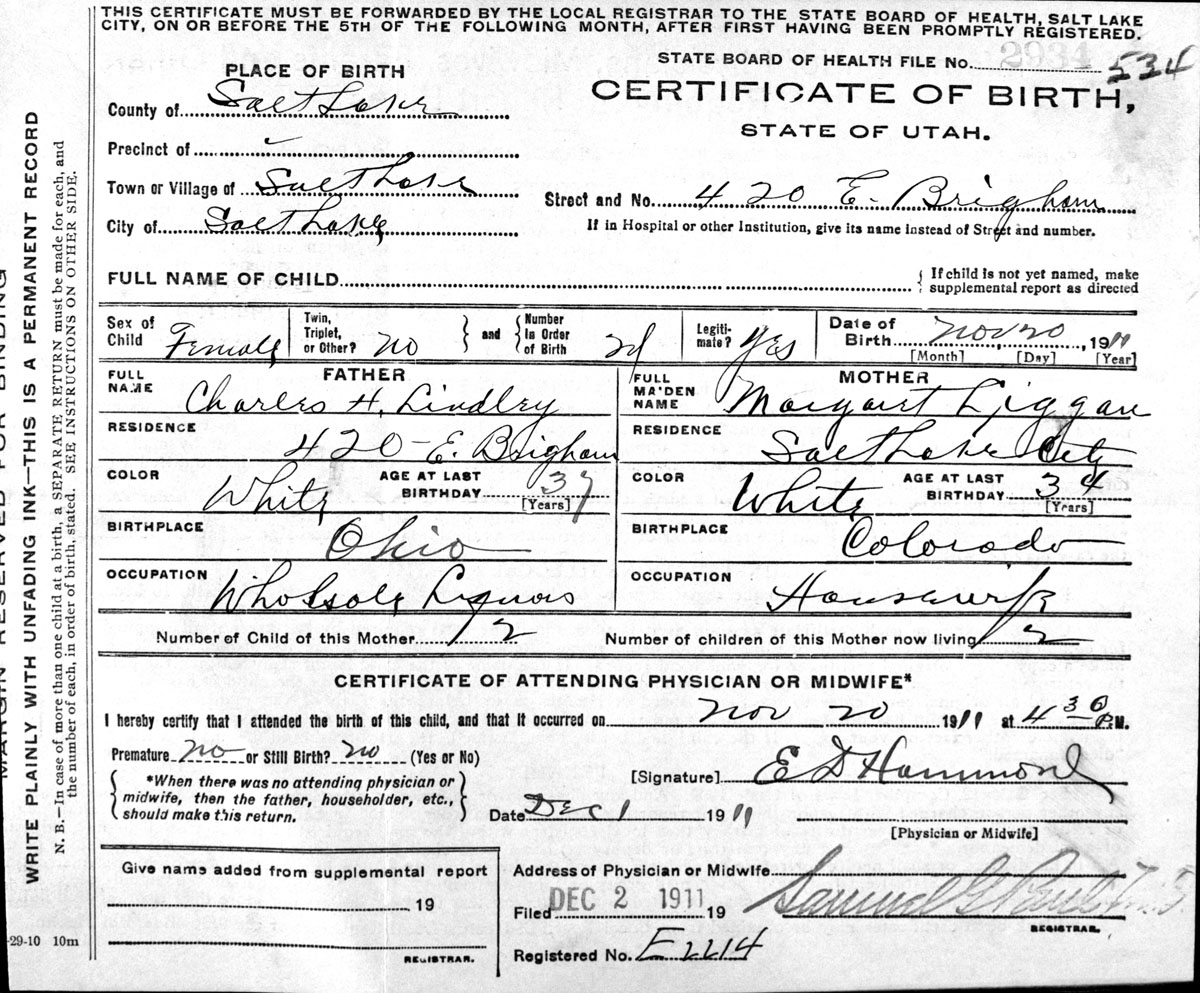 THIS CERTIFICATE MUST BE FORWARDED BY THE LOCAL REGISTRAR TO THE STATE BOARD OF HEALTH, SALT LAKE
CITY, ON OR BEFORE THE 5TH OF THE FOLLOWING MONTH, AFTER FIRST HAVING BEEN PROMPTLY REGISTERED.
MARGIN RESERVED FOR BINDING
WRITE PLAINLY WITH UNFADING INK—THIS IS A PERMANENT RECORD
N. B.—In case of more than one child at a birth, a SEPARATE RETURN must be made for each, and
the number of each, in order of birth, stated. SEE INSTRUCTIONS ON OTHER SIDE.
STATE BOARD OF HEALTH FILE No. 2934 534
CERTIFICATE OF BIRTH,
STATE OF UTAH.
PLACE OF BIRTH
County of Salt Lake
Precinct of
Town or Village of Salt Lake
City of Salt Lake
Street and No. 420 E. Brigham
If in Hospital or other Institution, give its name instead of Street and number.
FULL NAME OF CHILD
{ If child is not yet named, make
supplemental report as directed
Sex of Child Female
Twin, Triplet, or Other? No } and { Number in Order of Birth 2d
Legiti-mate? Yes
Date of Birth Nov, 20, 1911
[Month] [Day] [Year]
FATHER
FULL NAME Charles H. Lindley
RESIDENCE 420 - E. Brigham
COLOR White AGE AT LAST BIRTHDAY 37 [Years]
BIRTHPLACE Ohio
OCCUPATION Wholsale Liquors
MOTHER
FULL MAIDEN NAME Margaret Liggan
RESIDENCE Salt Lake City
COLOR White AGE AT LAST BIRTHDAY 34 [Years]
BIRTHPLACE Colorado
OCCUPATION Housewife
Number of Child of this Mother 2 Number of children of this Mother now living 2
CERTIFICATE OF ATTENDING PHYSICIAN OR MIDWIFE*
I hereby certify that I attended the birth of this child, and that it occurred on Nov 20 1911 at 4 30 P.M.
Premature No or Still Birth? No (Yes or No)
{ *When there was no attending physician or
midwife, then the father, householder, etc.,
should make this return. }
[Signature] E D Hammond
Date Dec 1 1911
[Physician or Midwife]
Give name added from supplemental report
19
REGISTRAR.
Address of Physician or Midwife
Filed DEC 2 1911 19 Samuel G Paul
REGISTRAR.
Registered No. E2214
-29-10 10m